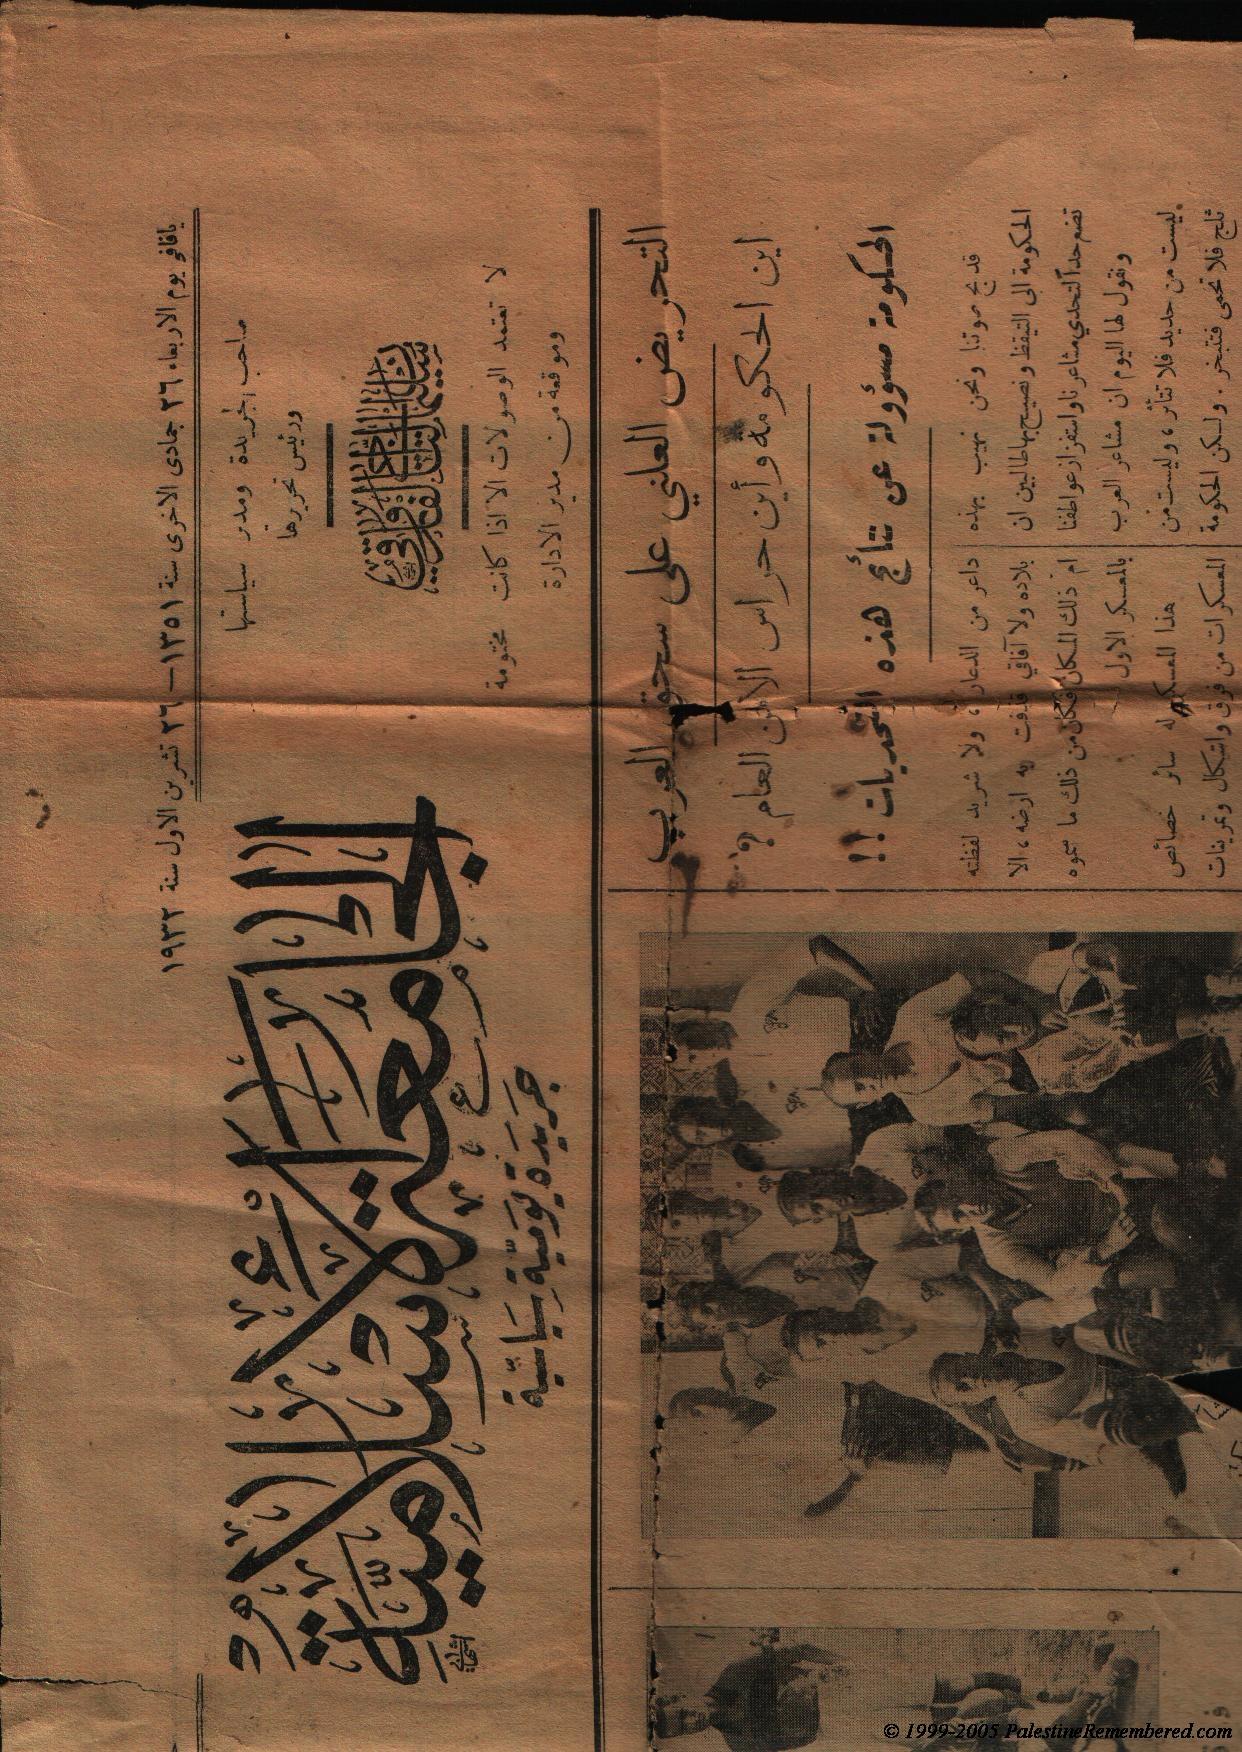 يافا في يوم الاربعاء ٢٦ جمادى الاخرى سنة ١٣٥١ — ٢٦ تشرين الاول سنة ١٩٣٢
صاحب الجريدة ومدير سياستها
ورئيس تحريرها
لا تعتمد الوصولات الا اذا كانت مختومة
وموقعة من مدير الادارة
الجامعة الاسلامية
جريدة يومية سياسية
التحريض العلني على سحق العرب
اين الحكومة وأين حراس الامن العام ؟
الحكومة مسؤولة عن نتائج هذه التحديات !!
قد بح صوتنا ونحن نهيب بهذه
الحكومة الى التيقظ ونصيح بها طالبين ان
تضع حداً لتحدي مشاعرنا واستفزاز عواطفنا
ونقول لها اليوم ان مشاعر العرب
ليست من حديد فلا تتأثر ، وليست من
ثلج فلا تحمى فتتبخر . ولكن الحكومة
داعر من الدعار ، ولا شريد لفظته
بلاده ولا آفاقي قذفت به ارضه ، الا
ام ذلك المكان فكان من ذلك ما سموه
بالمعسكر الاول
هذا المعسكر له سائر خصائص
المعسكرات من فرق واشكال وتمرينات
© 1999-2005 PalestineRemembered.com